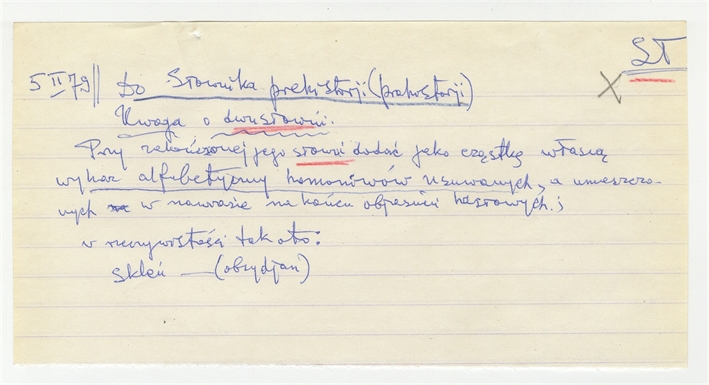 SŁ
5 II 79 || Do Słownika prehistorji (prahistorji)
Uwaga o dwusłowni.
Przy zakończonej jego słowni dodać jako cząstkę własną
wykaz alfabetyczny homonimów usuwanych, a umieszczo-
nych w nawiasie na końcu objaśnień hasłowych.;
w rzeczywistości tak oto:
skleń — (obsydjan)